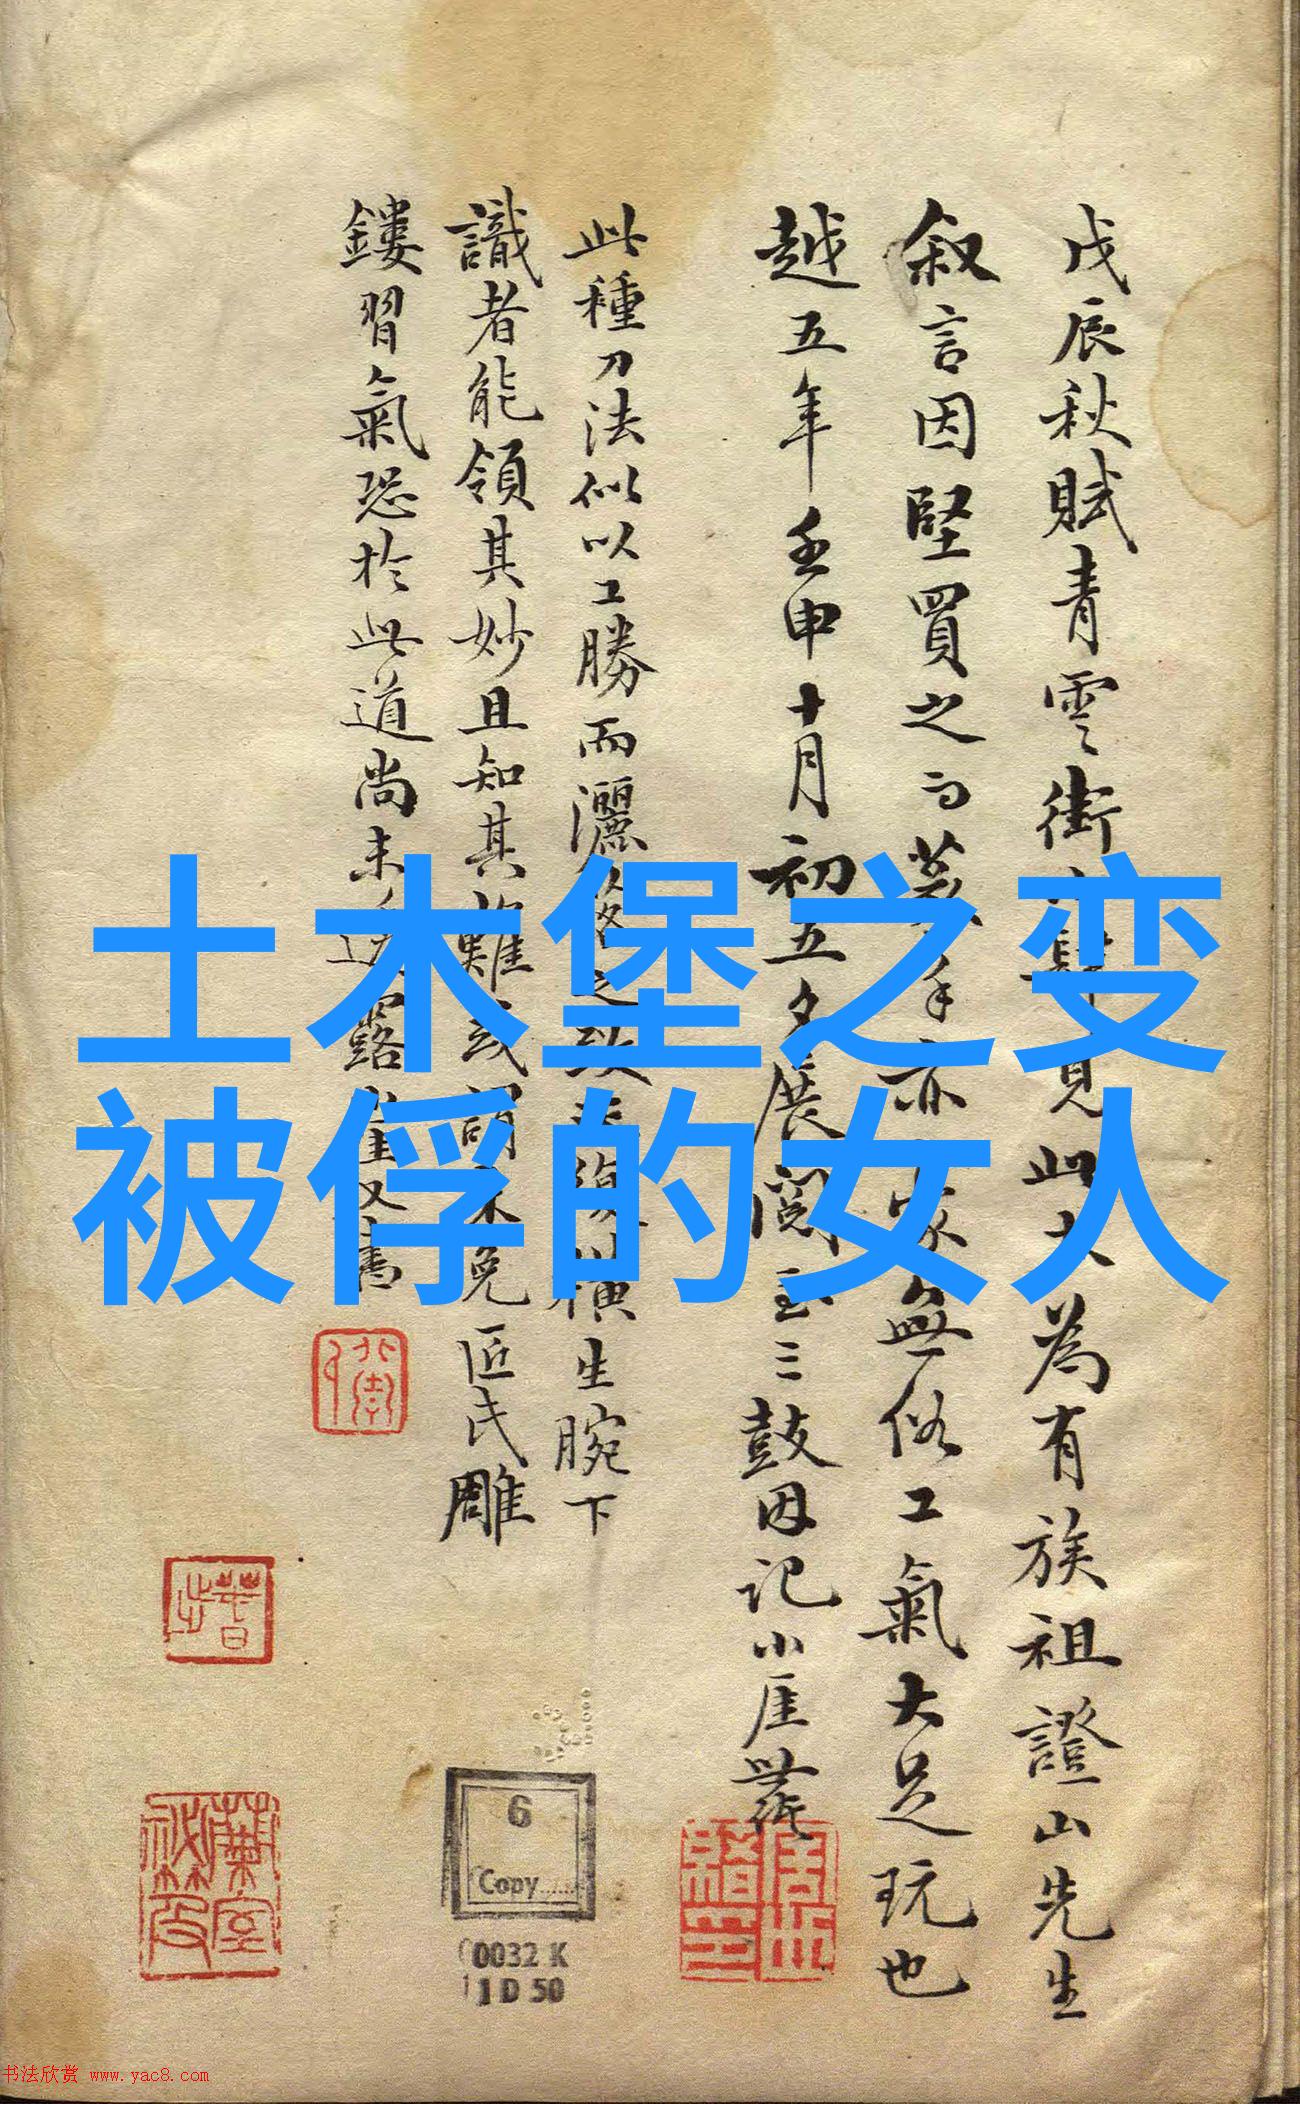 土木堡之变
被俘的女人
戊辰秋賦青雲街見此大為有族祖證山先生
叙言因堅買之而裝手亦無俗工氣大足玩也
越五年壬申十月初五夕展閱至三鼓因記小厓
此種刀法似以工勝而灑落之致生腕下
識者能領其妙且知其難或謂未免匠氏雕
鏤習氣恐於此道尚未露崖又書
6
Copy
0032 K
1 D 50
书法欣赏 www.yac8.com